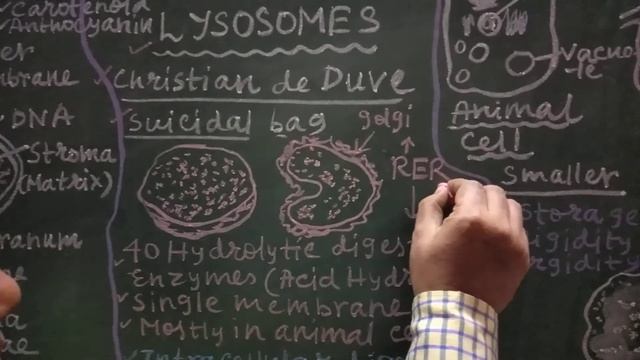 Carotenoid
Anthocyanin
er
brane
DNA
Stroma
(Matrix)
ranum
LYSOSOMES
Christian de Duve
Suicidal bag
golgi
RER
40 Hydrolytic diges
Enzymes (Acid Hyd
Single membrane
Mostly in animal ce
Vacuo
le
Animal
Cell
Smaller
Storage